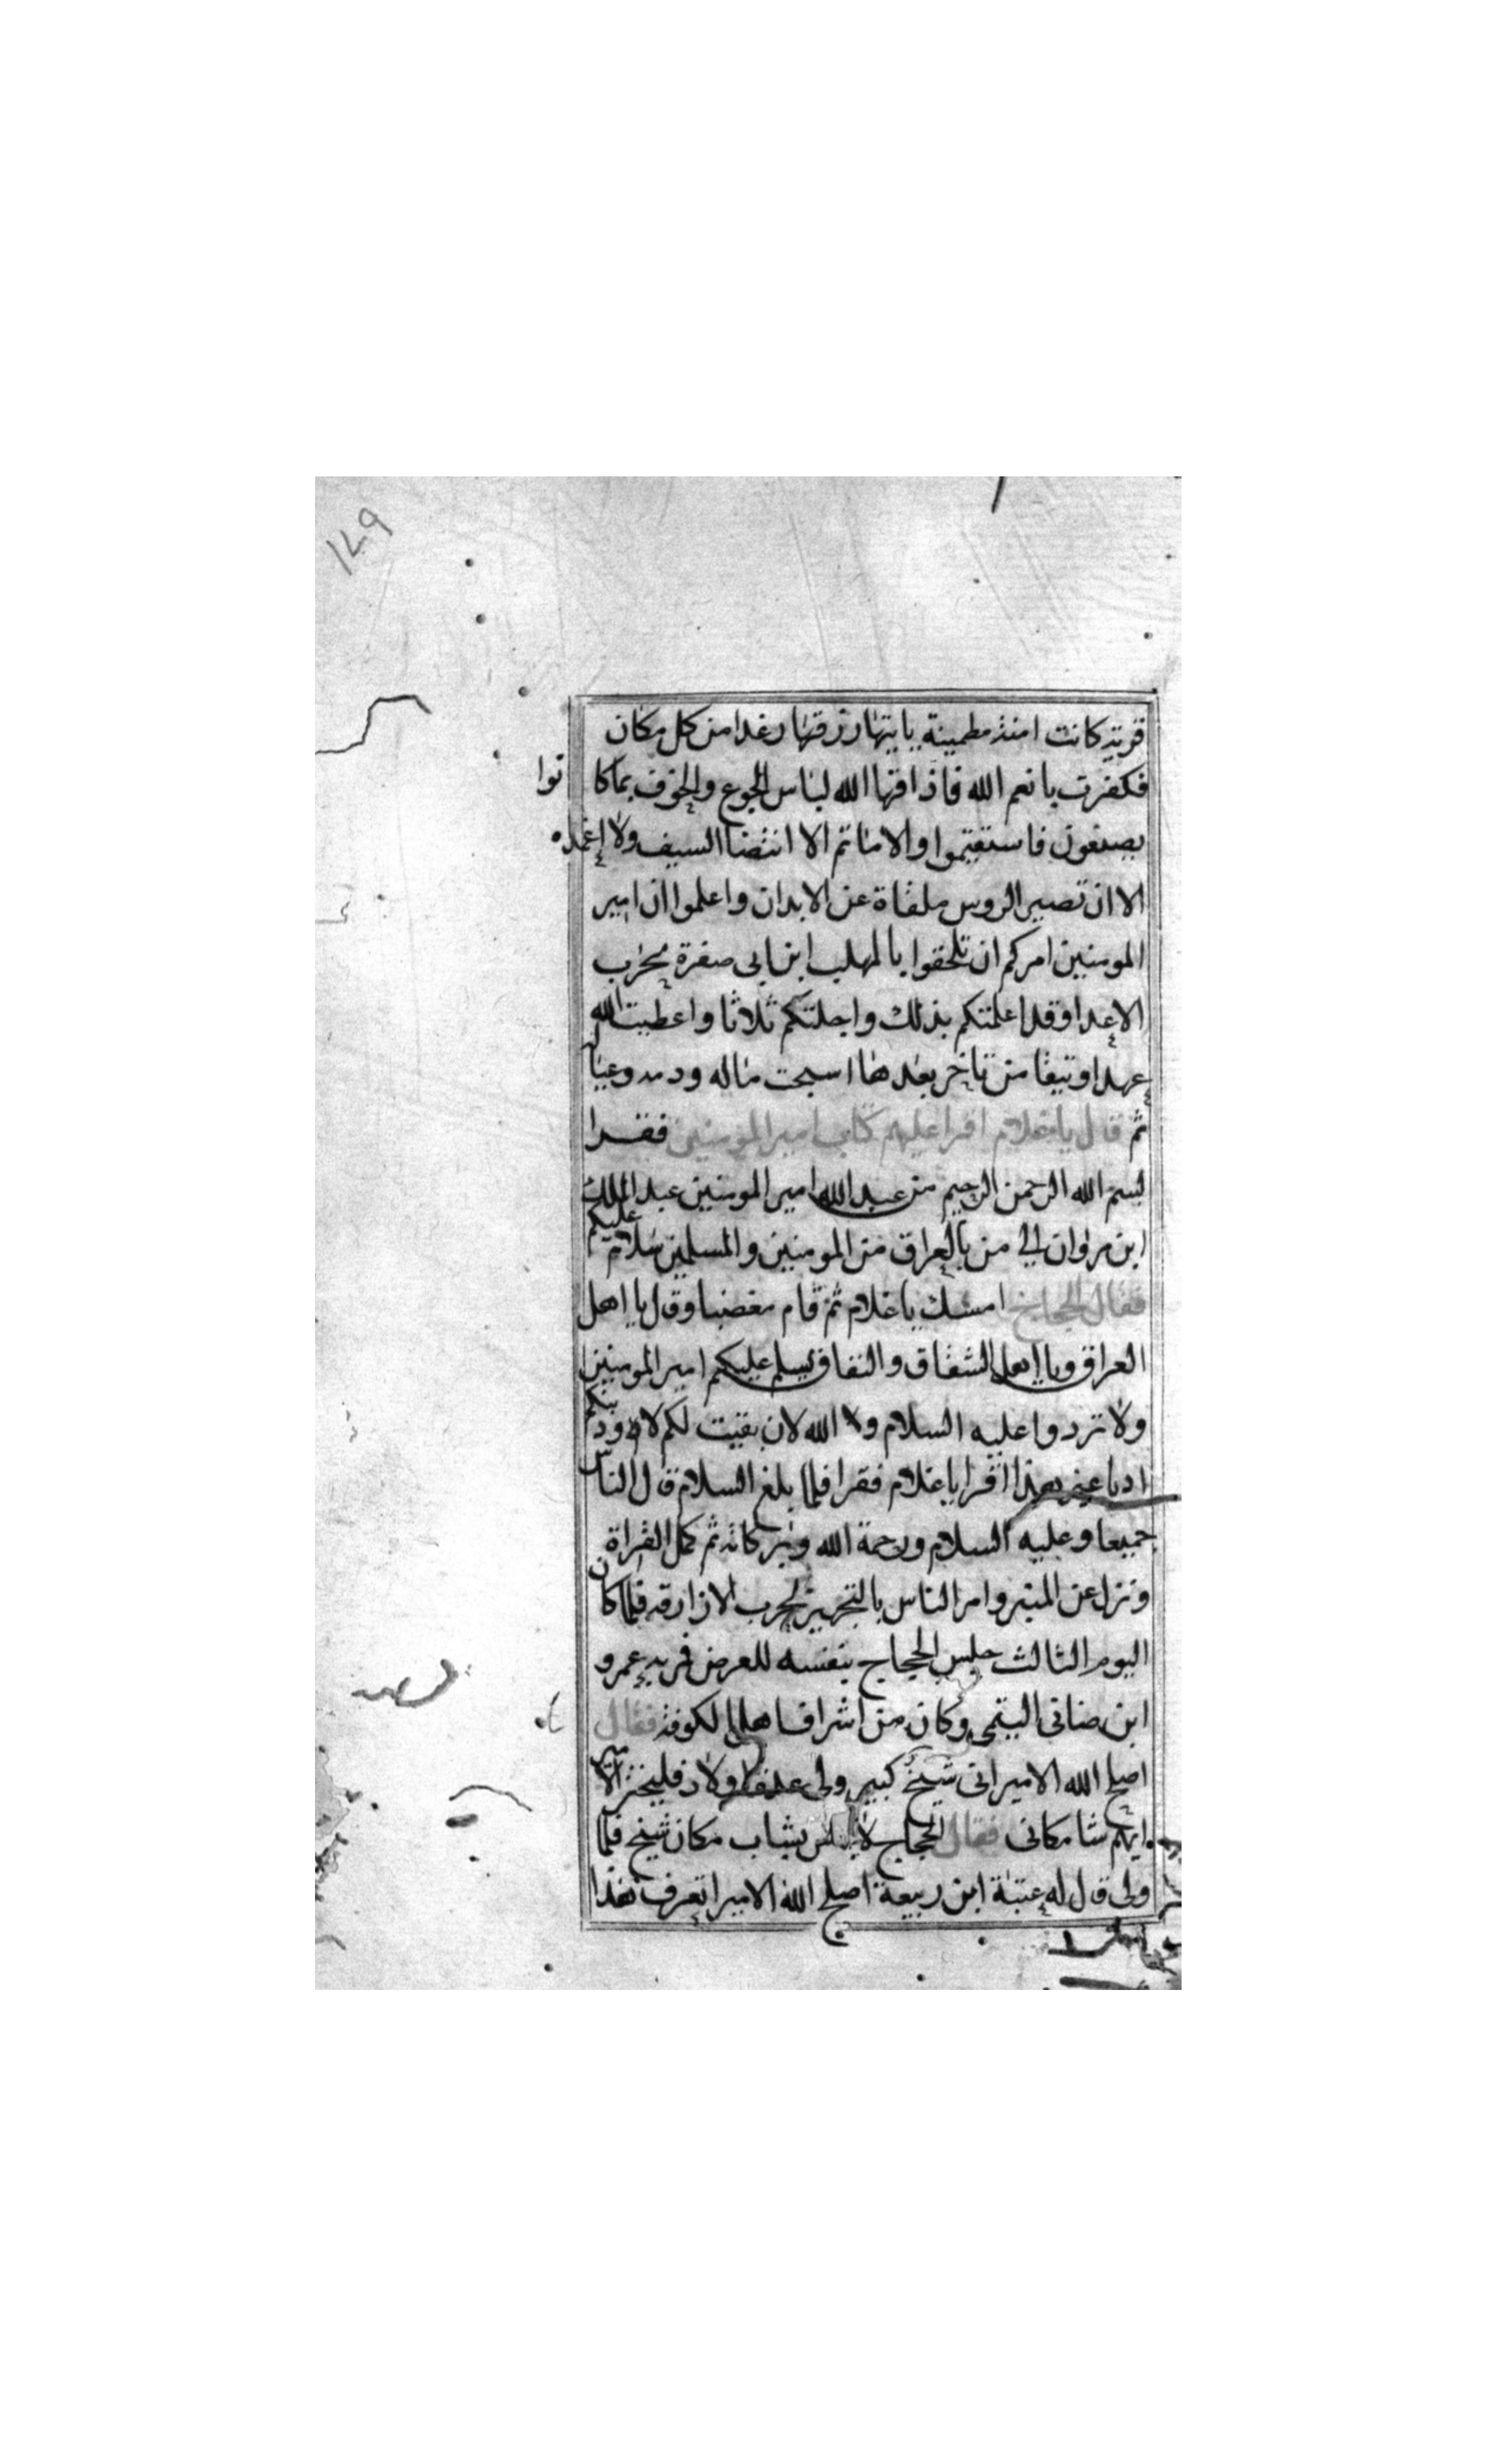 ١٤٩
قرية كانت امنة مطمينة ياتيها رزقها رغدا من كل مكان
فكفرت بانعم الله فاذاقها الله لباس الجوع والخوف بما كانوا
يصنعون فاستقيموا والامانم الا انتضنا السيف ولا اغمده
الا ان تصير الروس ملقاة عن الابدان واعلموا ان امير
المومنين امركم ان تلحقوا بالمهلب ابن ابى صفرة بحرب
الاعدا وقد اعلمتكم بذلك واجلتكم ثلاثا واعطيت الله
عهدا وتيقا من تاخر بعدها اسبحت ماله ودمه وعياله
ثم قال يا غلام اقرا عليهم كتاب امير المومنين فقرا
بسم الله الرحمن الرحيم من عبد الله امير المومنين عبد الملك
ابن مروان الى من بالعراق من المومنين والمسلمين سلام عليكم
فقال الحجاج امسك يا غلام ثم قام مغضبا وقال يا اهل
العراق ويا اهل الشقاق والنفاق يسلم عليكم امير المومنين
ولا تردوا عليه السلام ولا الله لان بقيت لكم لاودبنكم
ادبا غير هذا اقرا يا غلام فقرا فلما بلغ السلام قال الناس
جميعا وعليه السلام ورحمة الله وبركاته ثم كمل القراة
ونزل عن المنبر وامر الناس بالتجهيز لحرب الازارقه فلما كان
اليوم الثالث جلس الحجاج بنفسه للعرض فمر به عمرو
ابن ضانى التيمى وكان من اشراف اهل الكوفة فقال
اصلح الله الامير انى شيخ كبير ولى عدة اولاد فليختر الامير
ايهم شا مكانى فقال الحجاج لا باس بشاب مكان شيخ فلما
ولى قال له عتبة ابن ربيعة اصلح الله الامير اتعرف هذا